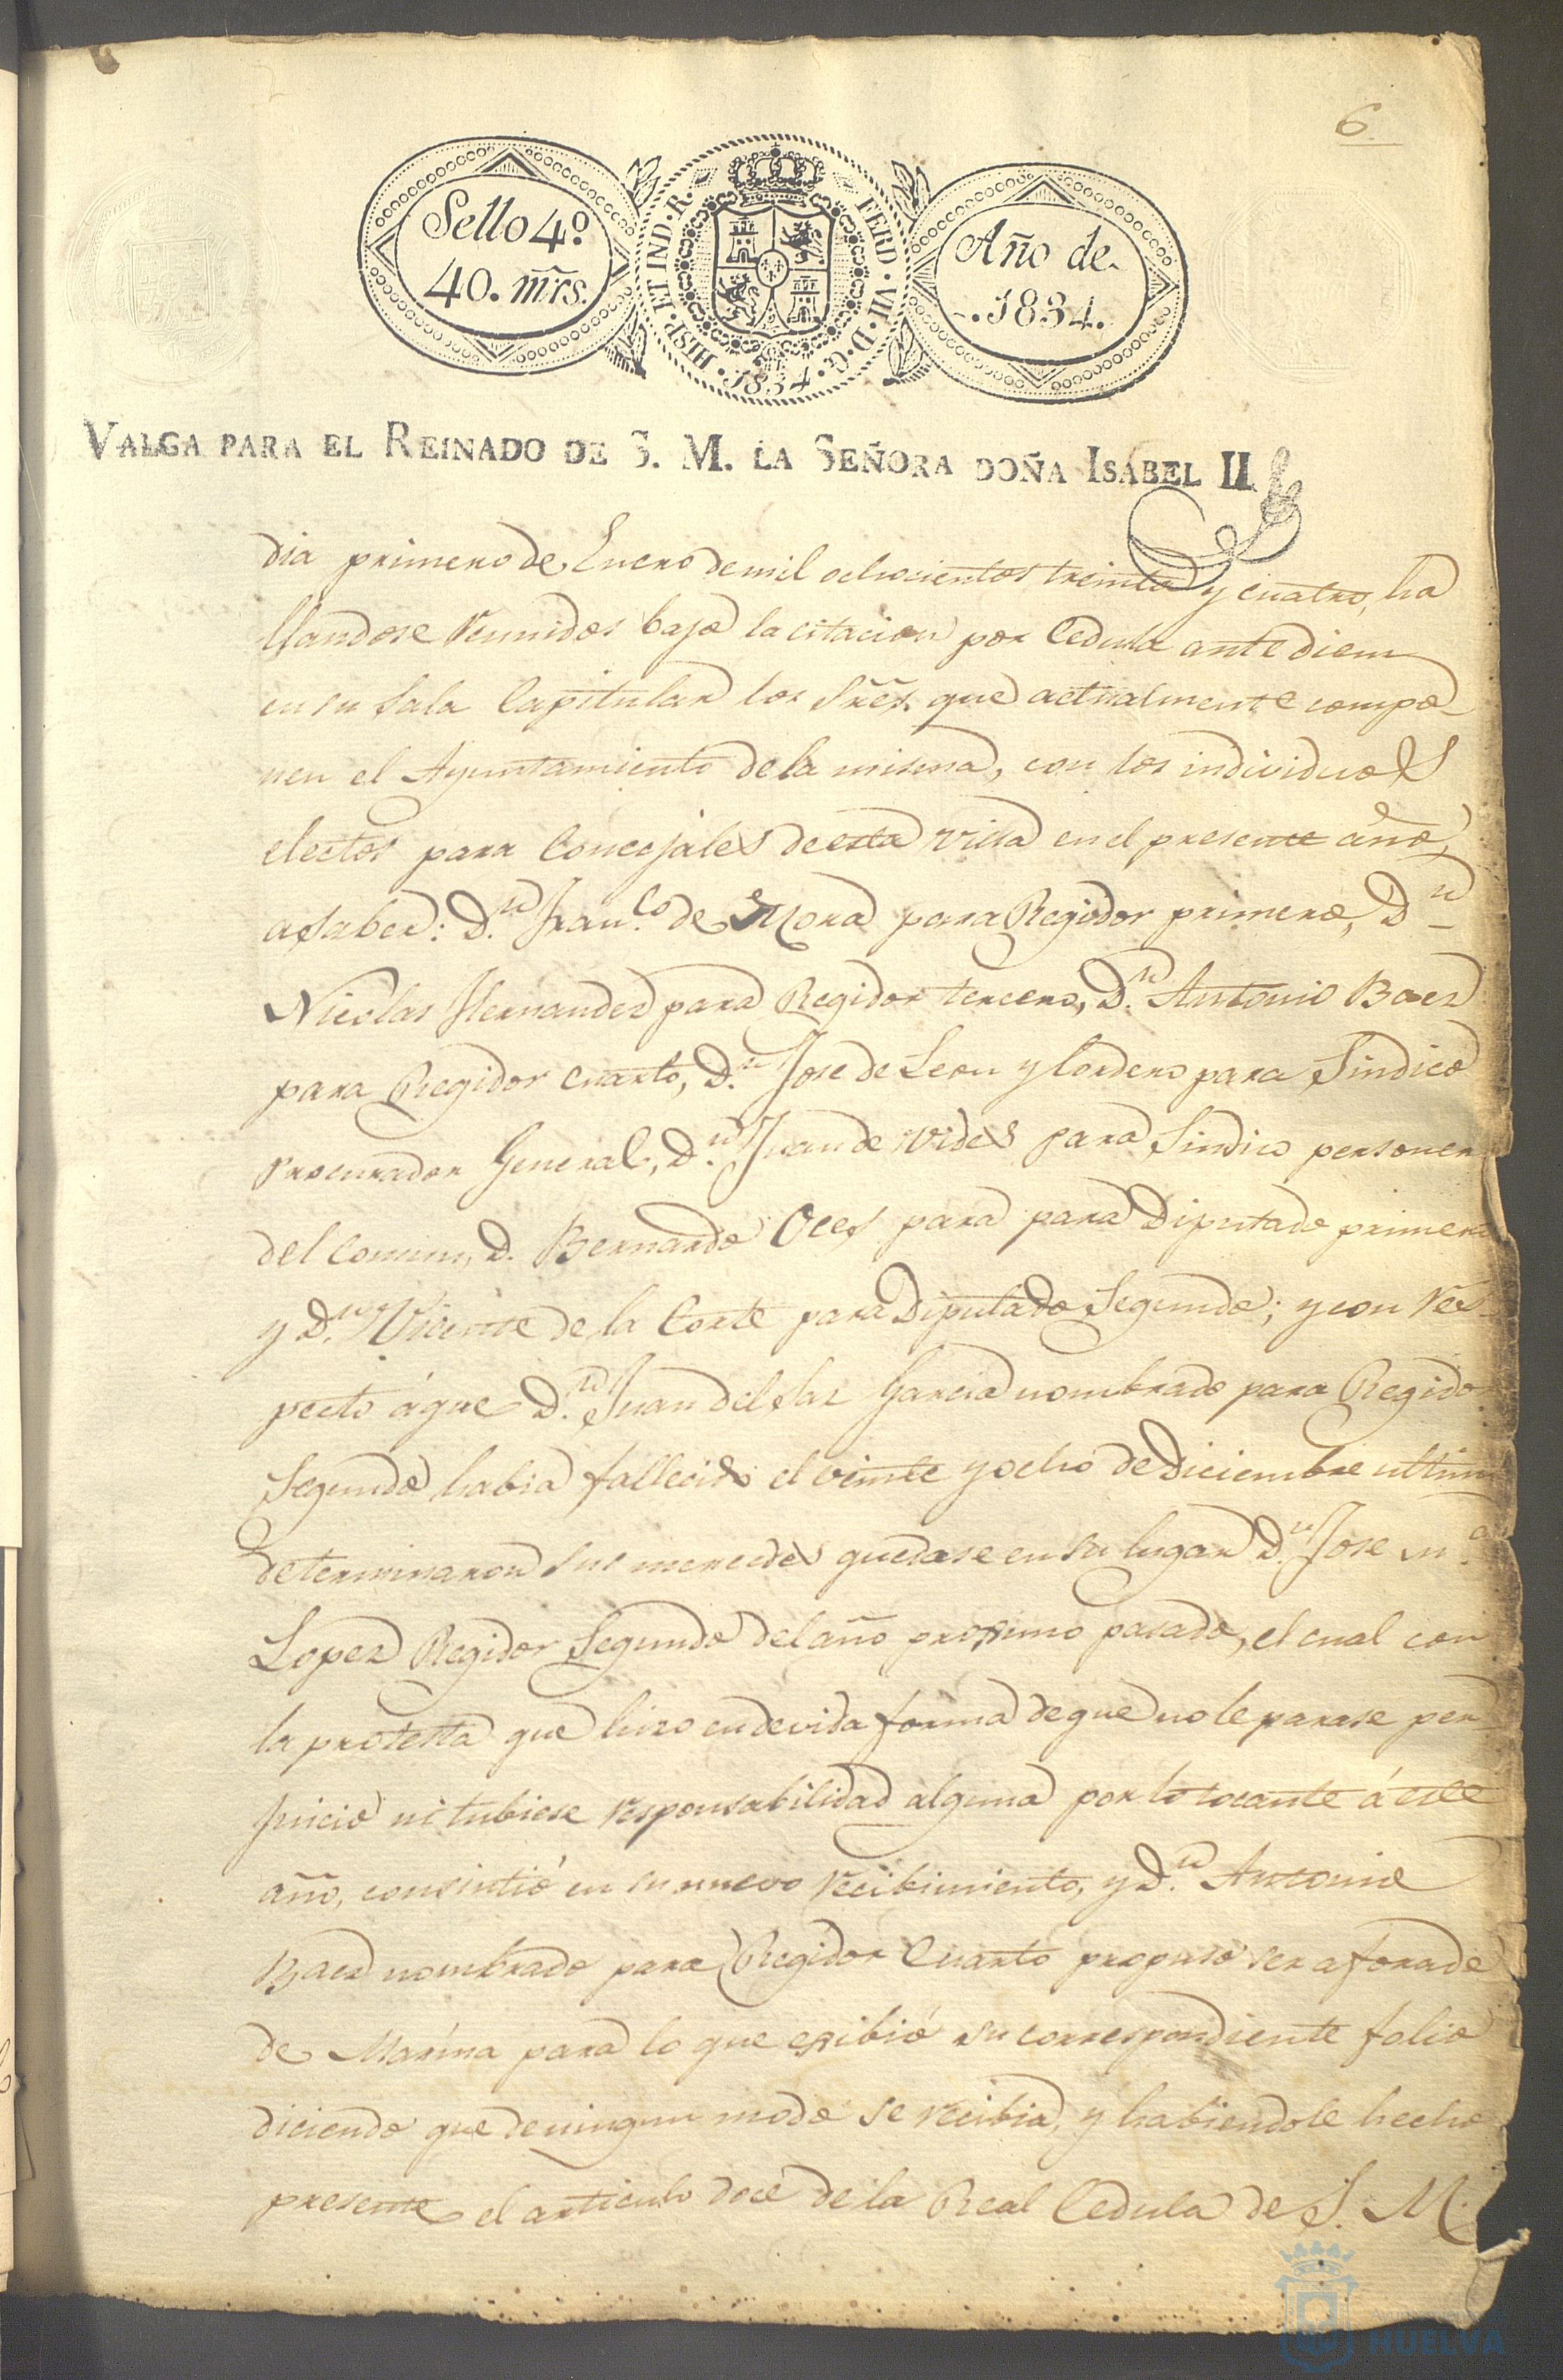 6
Sello 4º
40. mrs.
HISP. ET IND. R. FERD. VII. D. G. 1834.
Año de
1834.
VALGA PARA EL REINADO DE S. M. LA SEÑORA DOÑA ISABEL II
dia primero de Enero de mil ochocientos treinta y cuatro, ha
llandose reunidos bajo la citacion por Cedula ante diem
en su Sala Capitular los Sres. que actualmente compo-
nen el Ayuntamiento de la misma, con los individuos
electos para Concejales de esta villa en el presente año,
a saber: D.n Fran.co de Mora para Regidor primero, D.n
Nicolas Hernandez para Regidor tercero, D.n Antonio Baez
para Regidor cuarto, D.n Jose de Leon y Cordero para Sindico
Procurador General, D.n Juan de Vides para Sindico personer
del comun, D. Bernardo Oces para para Diputado primero
y D.n Vicente de la Corte para Diputado Segundo; y con res-
pecto á que D.n Juan del Saz Garcia nombrado para Regidor
Segundo habia fallecido el veinte y ocho de Diciembre ultimo
determinaron sus mercedes quedase en su lugar D.n Jose M.a
Lopez Regidor Segundo del año proximo pasado, el cual con
la protesta que hizo en devida forma de que no le parase per
juicio ni tubiese responsabilidad alguna por lo tocante á este
año, consintió en su nuevo recibimiento, y D.n Antonio
Baez nombrado para Regidor Cuarto propuso ser aforado
de Marina para lo que exibió su correspondiente folio
diciendo que de ningun modo se recibia, y habiendole hecho
presente el articulo doce de la Real Cedula de S. M.
HUELVA